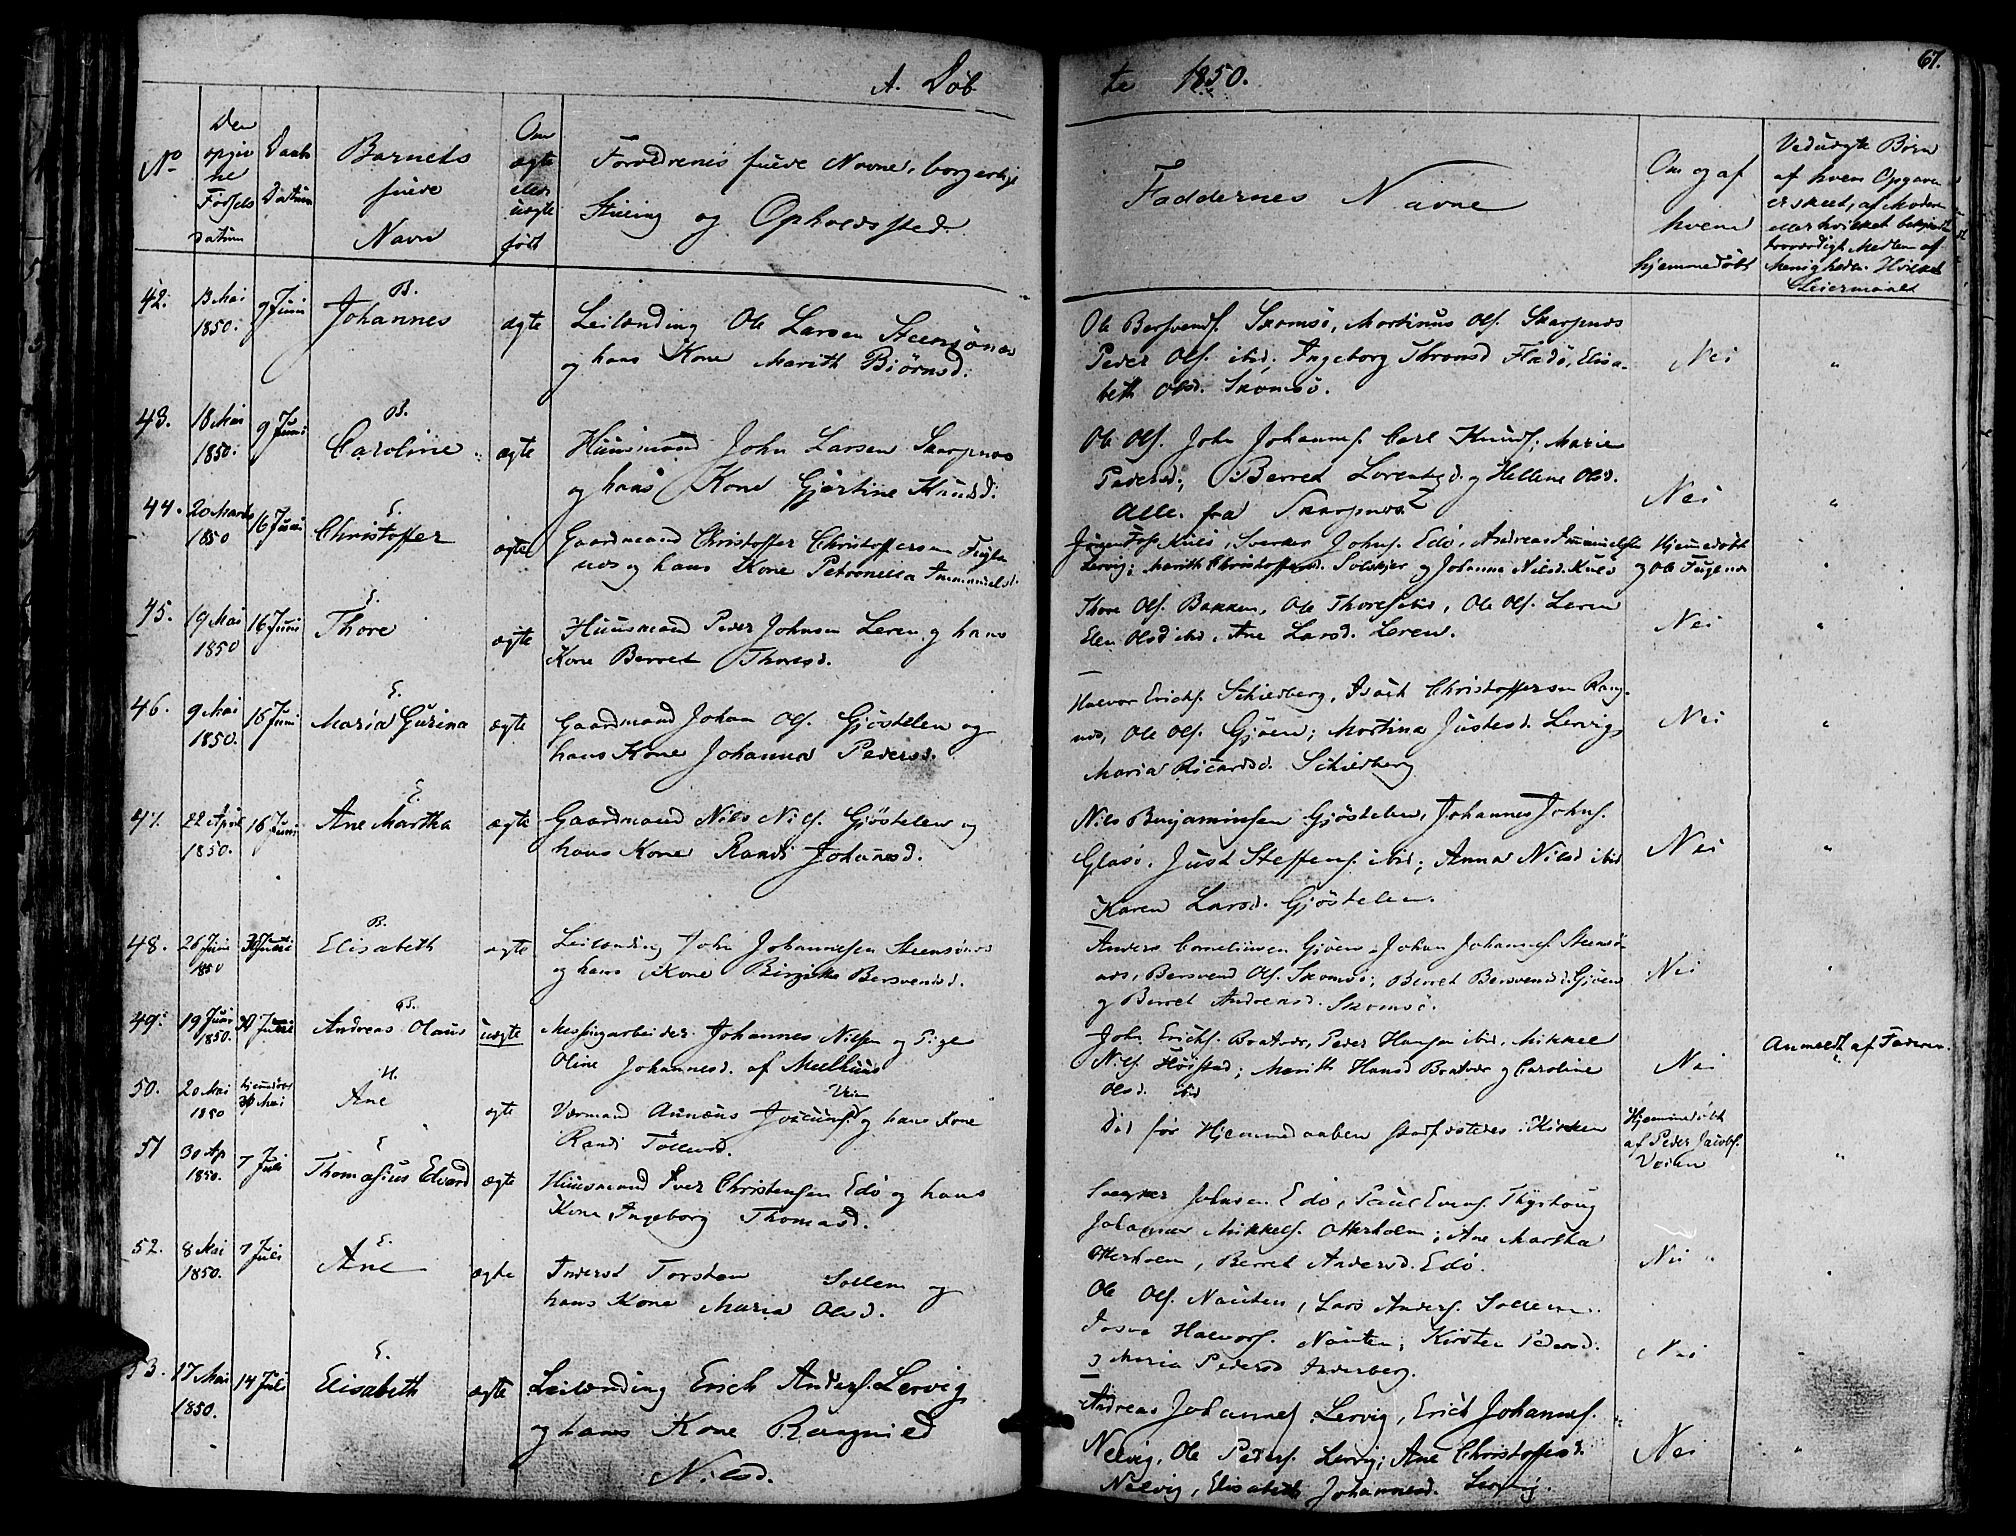 A. Døb
te 1850.
67.
No
Den opgivne Fødsels datum
Daabs Datum
Barnets fulde Navn
Om ægte eller uægte født
Forældrenes fulde Navne, borgerlige
Stilling og Opholdssted.
Faddernes Navne
Om og af hvem hjemmedøbt
Ved uægte Børn
af hvem Opgaven
er skeet, af Moder
eller hvilket bekjendt
troværdigt Medlem af
Menigheden. Hvilket
Leiermaal
42. 13 Mai 1850. 9 Juni B. Johannes ægte
Leilænding Ole Larsen Steensønæs
og hans Kone Marith Biörnsd.
Ole Bersvends. Skomsö, Martinus Ols. Skarpnæs
Peder Ols. ibid; Ingeborg Thronsd Fladö, Elisa-
beth Olsd. Skomsö.
Nei "
43. 18 Mai 1850. 9 Juni B. Caroline ægte
Huusmand John Larsen Skarpnæs
og hans Kone Gjertine Knudsd.
Ole Ols. John Johannes. Carl Knuds; Marie
Pedersd; Berret Lorentsd. og Hellene Olsd.
Alle fra Skarpnæs
Nei "
44. 20 Marts 1850 16 Juni E. Christoffer ægte
Gaardmand Christoffer Christoffersen Fugl-
næs og hans Kone Petronella Immanuelsd.
Kulö, Sverker Johns. Edö, Andreas Immanuelsen
Lervig; Marith Christoffersd. Solskjer og Johanna Nilsd. Kulö
Hjemmedøbt
af Ole Fuglnæs "
45. 19 Mai 1850 16 Juni E. Thore ægte
Huusmand Peder Johnsen Leren og hans
Kone Berret Thoresd.
Thore Ols. Bakken, Ole Thores ibid, Ole Ols. Leren
Elen Olsd ibid, Ane Larsd. Leren.
Nei "
46. 9 Mai 1850. 16 Juni E. Maria Gurina ægte
Gaardmand Johan Ols. Gjöstelen og
hans Kone Johanna Pedersd.
Halvor Erichs. Schiedberg, Isach Christoffersen Ramn-
næs, Ole Ols. Gjöen; Martina Justesd. Lervig,
Maria Ricardsd. Schiedberg
Nei "
47. 22 April 1850. 16 Juni E. Ane Martha ægte
Gaardmand Nils Nils. Gjöstelen og
hans Kone Randi Johansd.
Nils Benjaminsen Gjöstelen, Johannes Johns.
Glasö. Just Steffens. ibid; Anna Nilsd ibid
Karen Larsd. Gjöstelen.
Nei "
48. 26 Juni 1850 30 Juni B. Elisabeth ægte
Leilænding John Johannesen Steensönæs
og hans Kone Birgitte Bersvendsd.
Anders Corneliussen Gjöen, Johan Johannes. Steensö-
næs, Bersvend Ols. Skomsö; Berret Bersvendsd. Gjöen
og Berret Andreasd. Skomsö.
Nei "
49. 19 Juni 1850. 30 Juni B. Andreas Olaus uægte
Messingarbeider Johannes Nilsen og Pige
Oline Johannesd. af Melhuus
John Erichs. Bratvær, Peder Hansen ibid. Mikkel
Nils. Höistad; Marith Hansd Bratvær og Caroline
Olsd. ibid
Nei
Anmeldt af Faderen.
50. 20 Mai 1850 hjemmedøbt 30 Mai H. Ane ægte
Værmand Aunæus Jacobs. Veien og hans Kone
Randi Tollevsd.
Död før Hjemmedaaben stadfæstedes i Kirken
Hjemmedøbt
af Peder Jacobs.
Veien "
51 30 Ap 1850. 7 Juli E Thomasius Edvard ægte
Huusmand Iver Christensen Edö og hans
Kone Ingeborg Thomasd.
Sverker Johnsen Edö, Paul Evens. Thyshoug
Johannes Mikkels. Otterholm; Ane Martha
Otterholm, Berret Andersd. Edö.
Nei "
52. 8 Mai 1850. 7 Juli E. Ane ægte
Inderst Torsten Sollem og
hans Kone Maria Olsd.
Ole Ols. Nauten, Lars Anders. Sollem.
Halvors. Nauten; Kirsten Pedersd.
og Maria Pedersd Inderberg.
Nei "
53. 17 Mai 1850. 14 Juli E. Elisabeth ægte
Leilænding Erich Anders. Lervig
og hans Kone Ragnild
Nilsd.
Andreas Johannes Lervig, Erich Johannes.
Nelvig, Ole Peders. Lervig; Ane Christoffersd.
Nelvig, Elisabeth Johannesd. Lervig.
Nei "